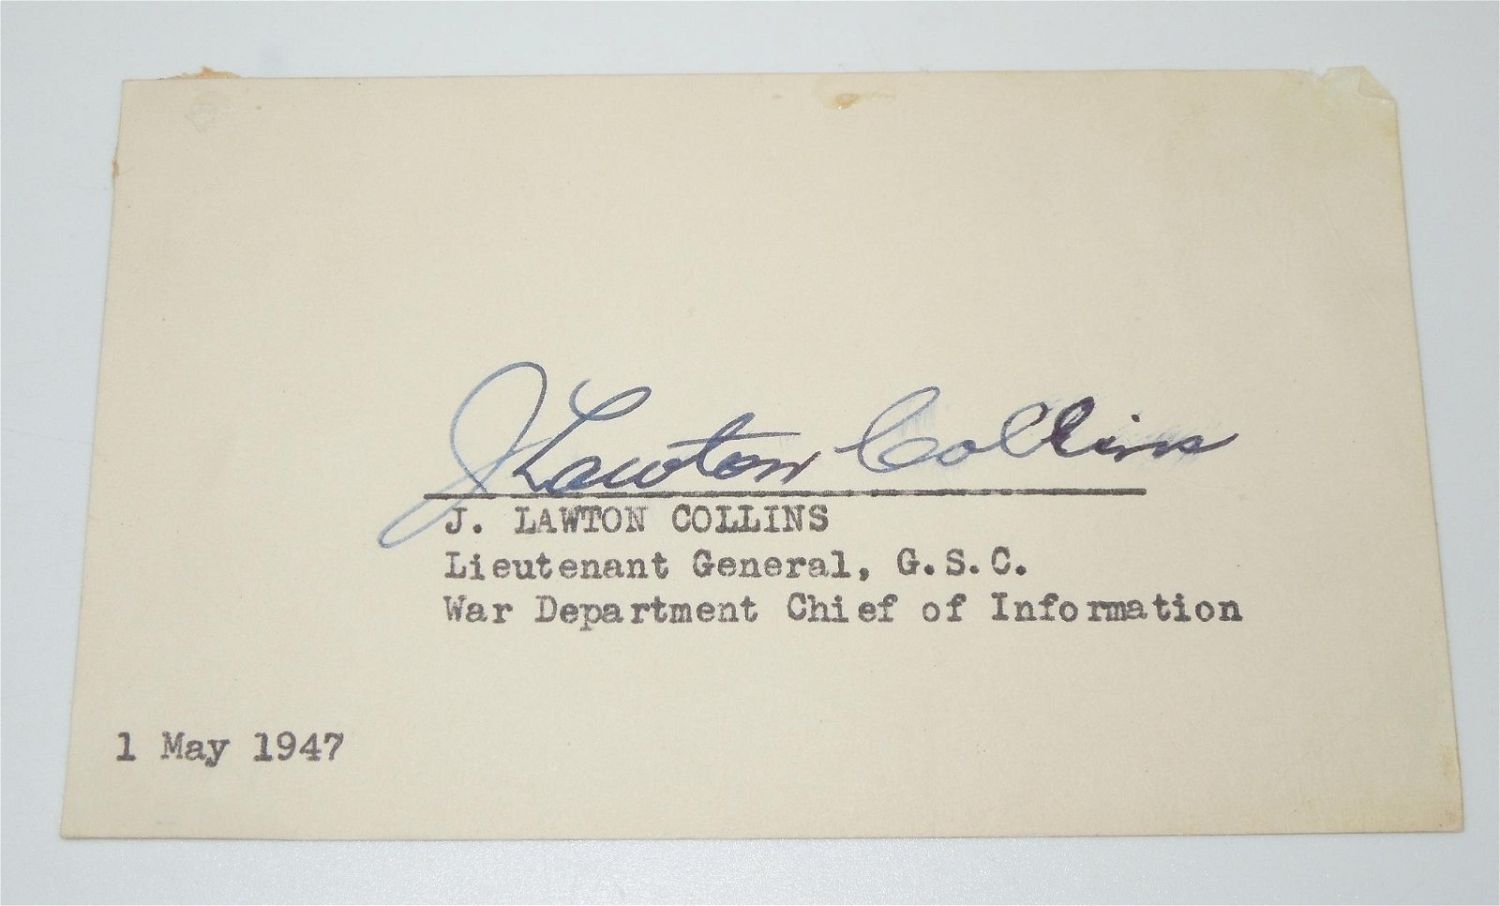 J Lawton Collins
J. LAWTON COLLINS
Lieutenant General, G.S.C.
War Department Chief of Information
1 May 1947